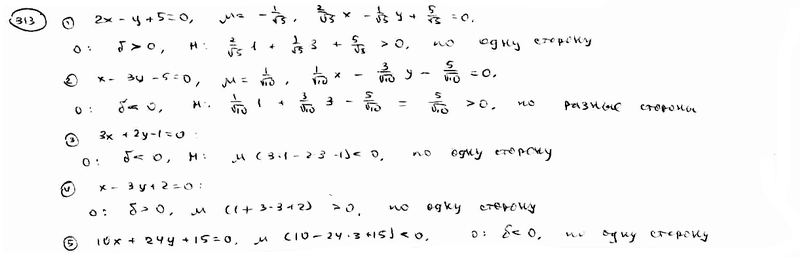 313 1) 2x - y + 5 = 0, μ = - 1/√5, 2/√5 x - 1/√5 y + 5/√5 = 0.
O: δ > 0, M: 2/√5 1 + 1/√5 3 + 5/√5 > 0, по одну сторону
2) x - 3y - 5 = 0, μ = 1/√10, 1/√10 x - 3/√10 y - 5/√10 = 0.
O: δ < 0, M: 1/√10 1 + 3/√10 3 - 5/√10 = 5/√10 > 0, по разные стороны
3) 3x + 2y - 1 = 0:
O: δ < 0, M: μ (3·1 - 2·3 - 1) < 0, по одну сторону
4) x - 3y + 2 = 0:
O: δ > 0, μ (1 + 3·3 + 2) > 0, по одну сторону
5) 10x + 24y + 15 = 0, μ (10 - 24·3 + 15) < 0, O: δ < 0, по одну сторону